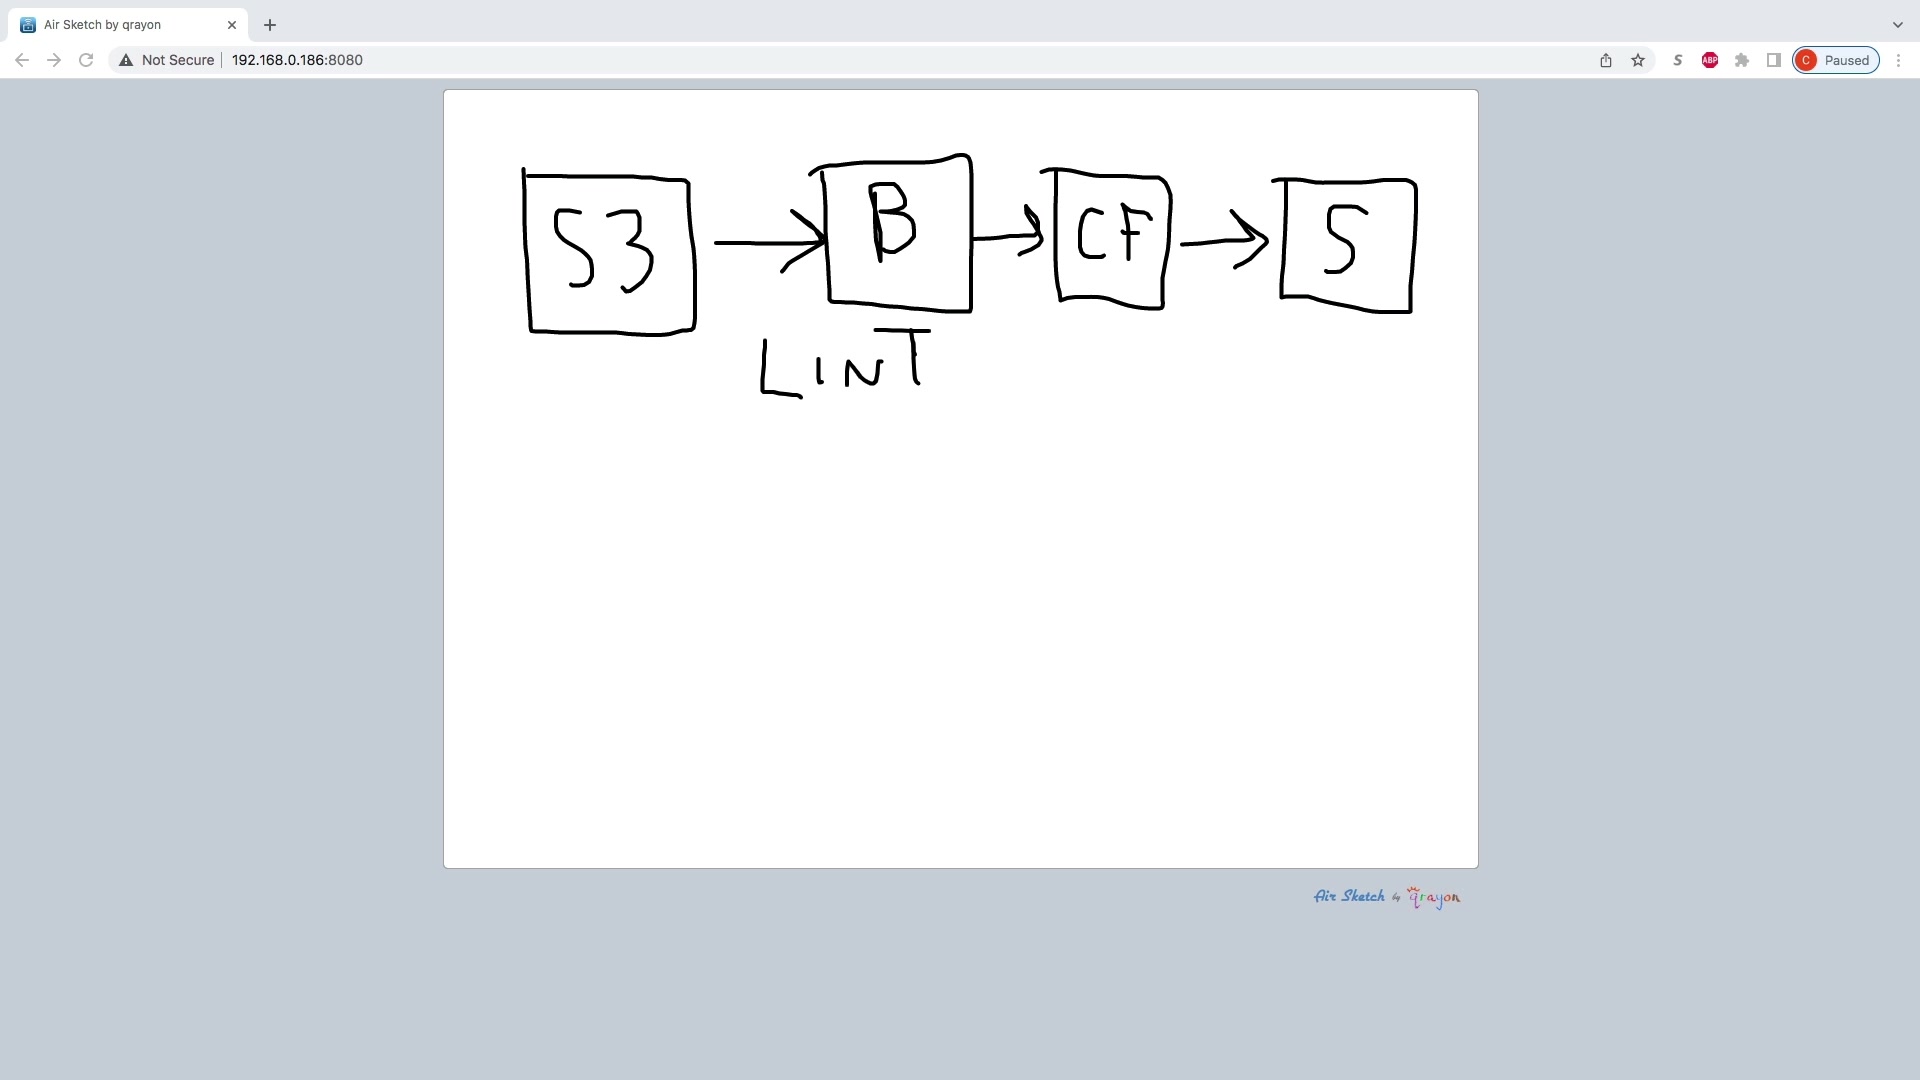 Air Sketch by qrayon
Not Secure 192.168.0.186:8080
S
ABP
C Paused
S3 B CF S
LINT
Air Sketch by qrayon